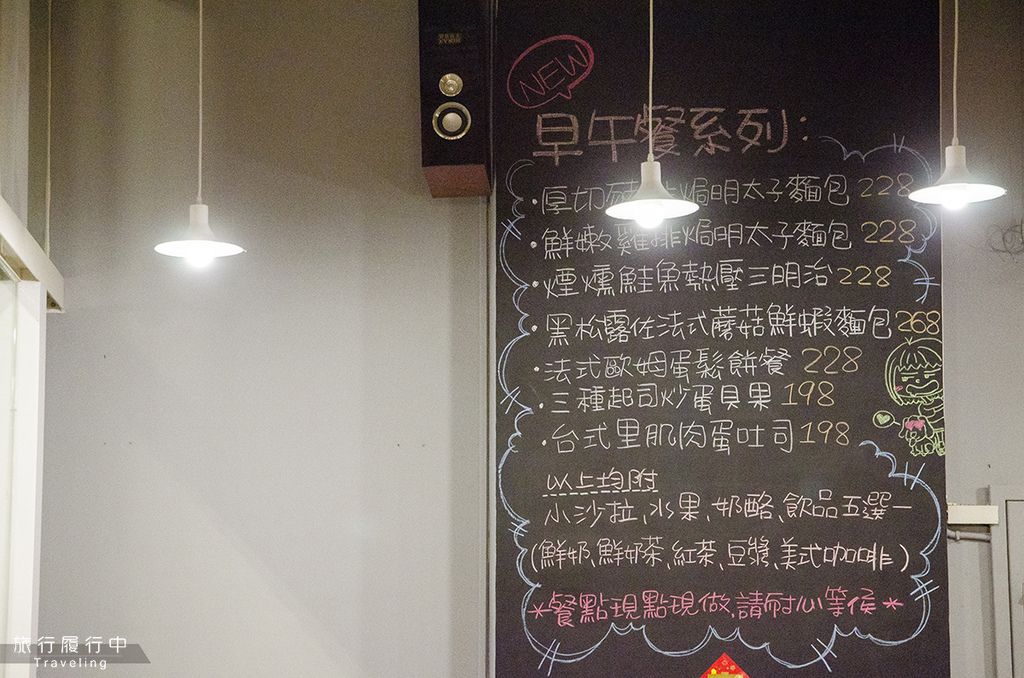 NEW
早午餐系列:
·厚切豬 焗明太子麵包 228
·鮮嫩雞排焗明太子麵包 228
·煙燻鮭魚熱壓三明治 228
·黑松露佐法式蘑菇鮮蝦麵包 268
·法式歐姆蛋鬆餅餐 228
·三種起司炒蛋貝果 198
·台式里肌肉蛋吐司 198
以上均附
小沙拉、水果、奶酪、飲品五選一
(鮮奶、鮮奶茶、紅茶、豆漿、美式咖啡)
*餐點現點現做,請耐心等侯*
旅行履行中
Traveling